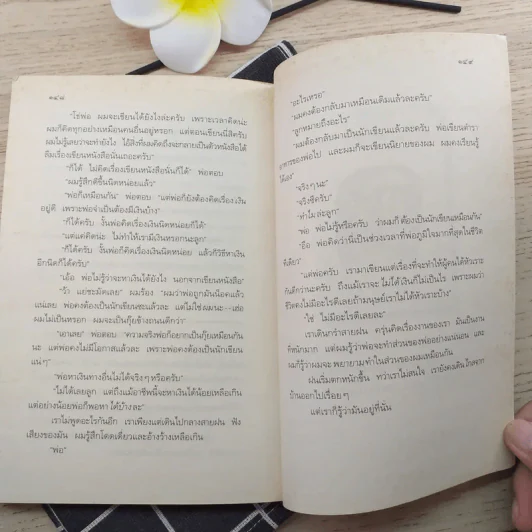 ๑๔๘
"ใช่พ่อ ผมจะเขียนได้ยังไงล่ะครับ เพราะเวลาคิดนะ
ผมก็คิดทุกอย่างเหมือนคนอื่นอยู่หรอก แต่ตอนเขียนนี่สิครับ
ผมไม่รู้เลยว่าจะทำยังไง ไอ้สิ่งที่ผมคิดถึงจะกลายเป็นตัวหนังสือได้
ลืมเรื่องเขียนหนังสือนั่นเถอะครับ"
"ก็ได้ ไม่คิดเรื่องเขียนหนังสือนั่นก็ได้" พ่อตอบ
"ผมรู้สึกดีขึ้นนิดหน่อยแล้ว"
"พ่อก็เหมือนกัน" พ่อตอบ "แต่พ่อก็ยังต้องคิดเรื่องเงิน
อยู่ดี เพราะพ่อจำเป็นต้องมีเงินบ้าง"
"ก็ได้ครับ งั้นพ่อคิดเรื่องเงินนิดหน่อยก็ได้"
"แต่แค่คิดน่ะ ไม่ทำให้เรามีเงินหรอกนะลูก"
"ก็ได้ครับ งั้นพ่อก็คิดเรื่องเงินนิดหน่อย แล้วก็วิธีหาเงิน
อีกนิดก็ได้ครับ"
"เอ้อ พ่อไม่รู้ว่าจะหาเงินได้ยังไง นอกจากเขียนหนังสือ"
"ว้า แย่ชะมัดเลย" ผมร้อง "ผมว่าพ่อถูกมันน็อคแล้ว
แน่เลย พ่อคงต้องเป็นนักเขียนซะแล้วล่ะ แต่ไม่ใช่ผมนะ—เฮ่อ
ผมไม่เป็นหรอก ผมจะเป็นกุ๊ยข้างถนนดีกว่า"
"เอาเลย" พ่อตอบ "ความจริงพ่อก็อยากเป็นกุ๊ยเหมือนกัน
นะ แต่พ่อคงไม่มีโอกาสแล้วล่ะ เพราะพ่อคงต้องเป็นนักเขียน
แน่ๆ"
"พ่อหาเงินทางอื่นไม่ได้จริงๆ หรือครับ"
"ไม่ได้เลยลูก แต่ถึงแม้อาชีพนี้จะหาเงินได้น้อยเหลือเกิน
แต่อย่างน้อยก็พอหาได้บ้างล่ะ"
เราไม่พูดอะไรกันอีก เราเพียงแต่เดินไปกลางสายฝน ฟัง
เสียงของมัน ผมรู้สึกโดดเดี่ยวและอ้างว้างเหลือเกิน
"พ่อ"
๑๔๙
"อะไรเหรอ"
"ผมคงต้องกลับมาเหมือนเดิมแล้วล่ะครับ"
"ลูกหมายถึงอะไร"
"ผมต้องกลับมาเป็นนักเขียนแล้วล่ะครับ พ่อเขียนตำรา
อาหารของพ่อไป และผมก็จะเขียนนิยายของผม ผมคงเรียนรู้
ได้เอง"
"จริงๆ นะ"
"จริงซีครับ"
"ทำไมล่ะลูก"
"พ่อ พ่อไม่รู้หรือครับ ว่าผมก็ต้องเป็นนักเขียนเหมือนกัน"
"อือ พ่อคิดว่านี่เป็นช่วงเวลาที่พ่อภูมิใจมากที่สุดในชีวิต
ทีเดียว"
"แต่พ่อครับ เรามาเขียนแต่เรื่องที่จะทำให้ผู้คนได้หัวเราะ
กันดีกว่านะครับ ถึงแม้เราจะไม่ได้เงินก็ไม่เป็นไร เพราะผมว่า
ชีวิตคงไม่มีอะไรดีเลยถ้ามนุษย์เราไม่ได้หัวเราะบ้าง"
"ใช่ ไม่มีอะไรดีเลยละ"
เราเดินกร่ำสายฝน ครุ่นคิดเรื่องงานของเรา มันเป็นงาน
ที่หนักมาก แต่ผมรู้ว่าพ่อจะทำส่วนของพ่ออย่างแน่นอน และ
ผมก็รู้ว่าผมจะพยายามทำในส่วนของผมเหมือนกัน
ฝนเริ่มตกหนักขึ้น ทว่าเราไม่สนใจ เรายังคงเดินไกลจาก
บ้านออกไปเรื่อยๆ
แต่เราก็รู้ว่ามันอยู่ที่นั่น